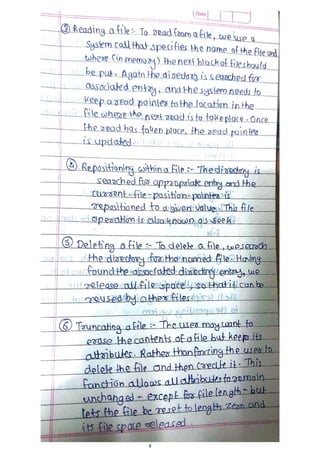 Date
③ Reading a file :- To read from a file, we use a
system call that specifies the name of the file and
where (in memory) the next block of file should
be put. Again the directory is searched for
associated entry, and the system needs to
keep a read pointer to the location in the
file where the next read is to take place. Once
the read has taken place, the read pointer
is updated.
④ Repositioning within a file :- The directory is
searched for appropriate entry and the
current-file-position-pointer is
repositioned to a given value. This file
operation is also known as seek
⑤ Deleting a file :- To delete a file, we search
the directory for the named file. Having
found the associated directory entry, we
release all file space, so that it can be
reused by other files.
⑥ Truncating a file :- The user may want to
erase the contents of a file but keep its
attributes. Rather than forcing the user to
delete the file and then create it. This
function allows all attributes to remain
unchanged - except for file length - but
lets the file be reset to length zero and
its file space released